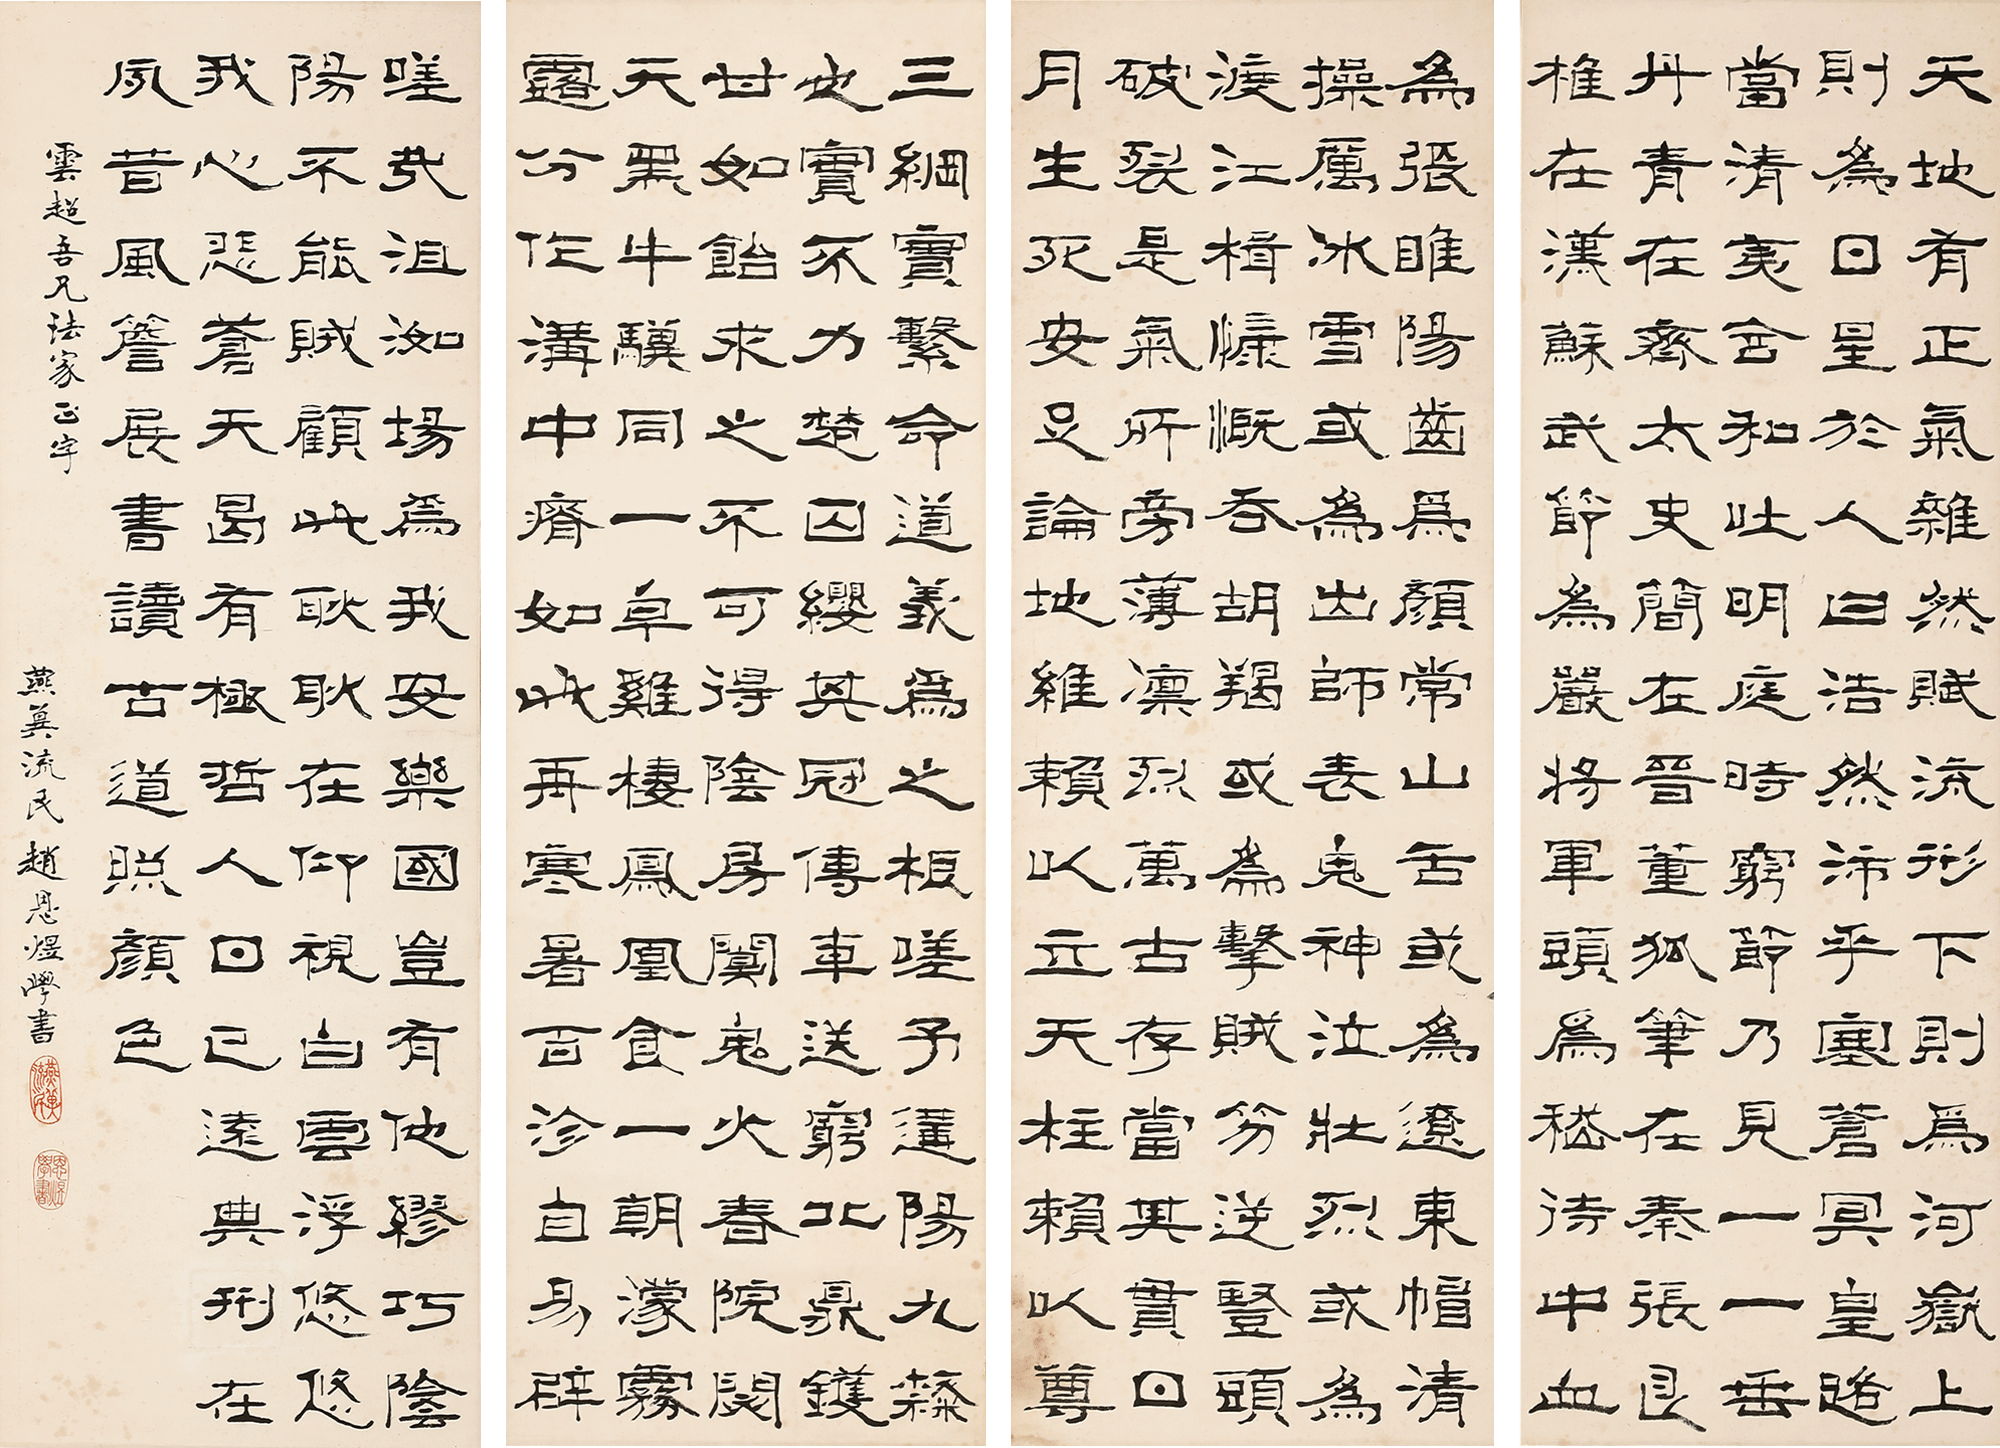 天地有正氣雜然賦流形下則爲河嶽上
則為日星於人曰浩然沛乎塞蒼冥皇路
當清夷含和吐明庭時窮節乃見一一垂
丹青在齊太史簡在晉董狐筆在秦張良
椎在漢蘇武節為嚴將軍頭爲嵇侍中血
為張睢陽齒爲顏常山舌或為遼東帽清
操厲冰雪或為出師表鬼神泣壯烈或為
渡江楫慷慨吞胡羯或為擊賊笏逆豎頭
破裂是氣所旁薄凜烈萬古存當其貫日
月生死安足論地維賴以立天柱賴以尊
三綱實繫命道義爲之根嗟予遘陽九隸
也實不力楚囚纓其冠傳車送窮北鼎鑊
甘如飴求之不可得陰房闃鬼火春院閟
天黑牛驥同一皁雞棲鳳凰食一朝濛霧
露分作溝中瘠如此再寒暑百沴自易辟
嗟哉沮洳場爲我安樂國豈有他繆巧陰
陽不能賊顧此耿耿在仰視白雲浮悠悠
我心悲蒼天曷有極哲人日已遠典刑在
夙昔風簷展書讀古道照顏色
雲超吾兄法家正字
燕冀流民 趙恩煜學書
燕冀流民
恩煜學書